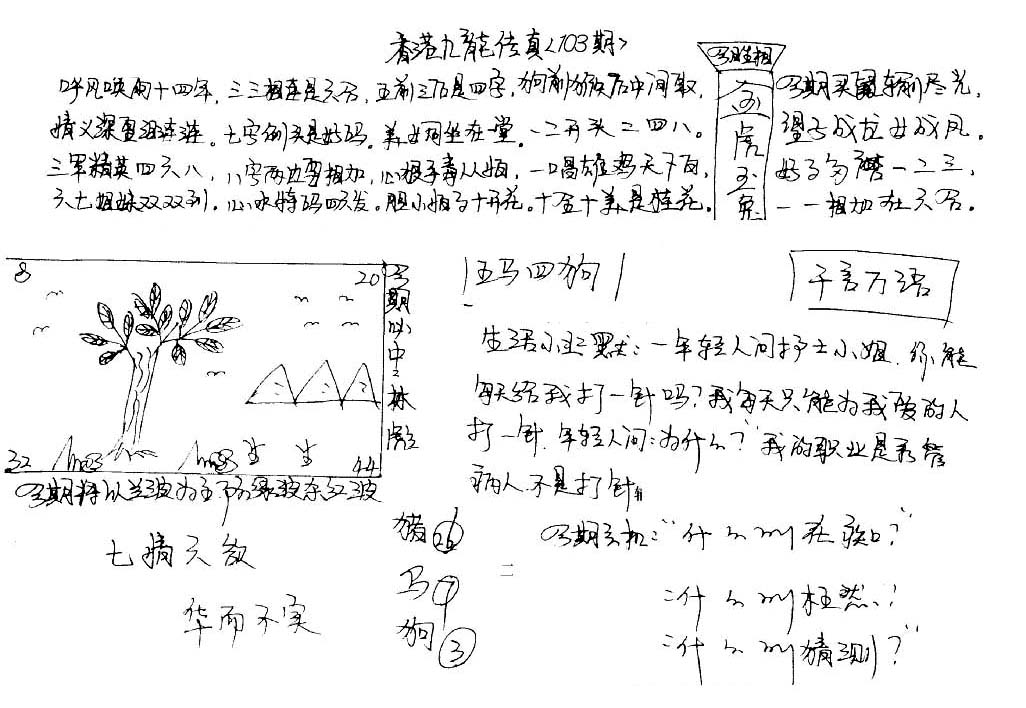 香港九龙传真<103期>
呼风唤雨十四年，三三相连是六合，五前三后是四字，狗前猴后中间取，
情义深重，七字例头是好码。美女同坐在堂。一二开头二四八。
三军精英四六八，八字两边要相加，心狠手毒从姻，一唱雄鸡天下白，
六七姐妹双双到。心水特码四六发。胆小姐子十开花。十全十美是桂花。
今期生相
金
虎
玉
兔
今期买尽光，
望子成龙女成凤。
好了多一二三，
一一相加在六合。
8
20
32
44
今期必中之
今期特以兰波为主下防绿波杂红波
五马四狗
千言万语
生活小幽默：一年轻人问护士小姐，你能
每天给我打一针吗？我每天只能为我爱的人
打一针，年轻人问：为什么？我的职业是看管
病人不是打针。
七情六欲
华而不实
猪
马
狗③
二
今期玄机："什么叫在
二什么叫枉然？
二什么叫猜测？"